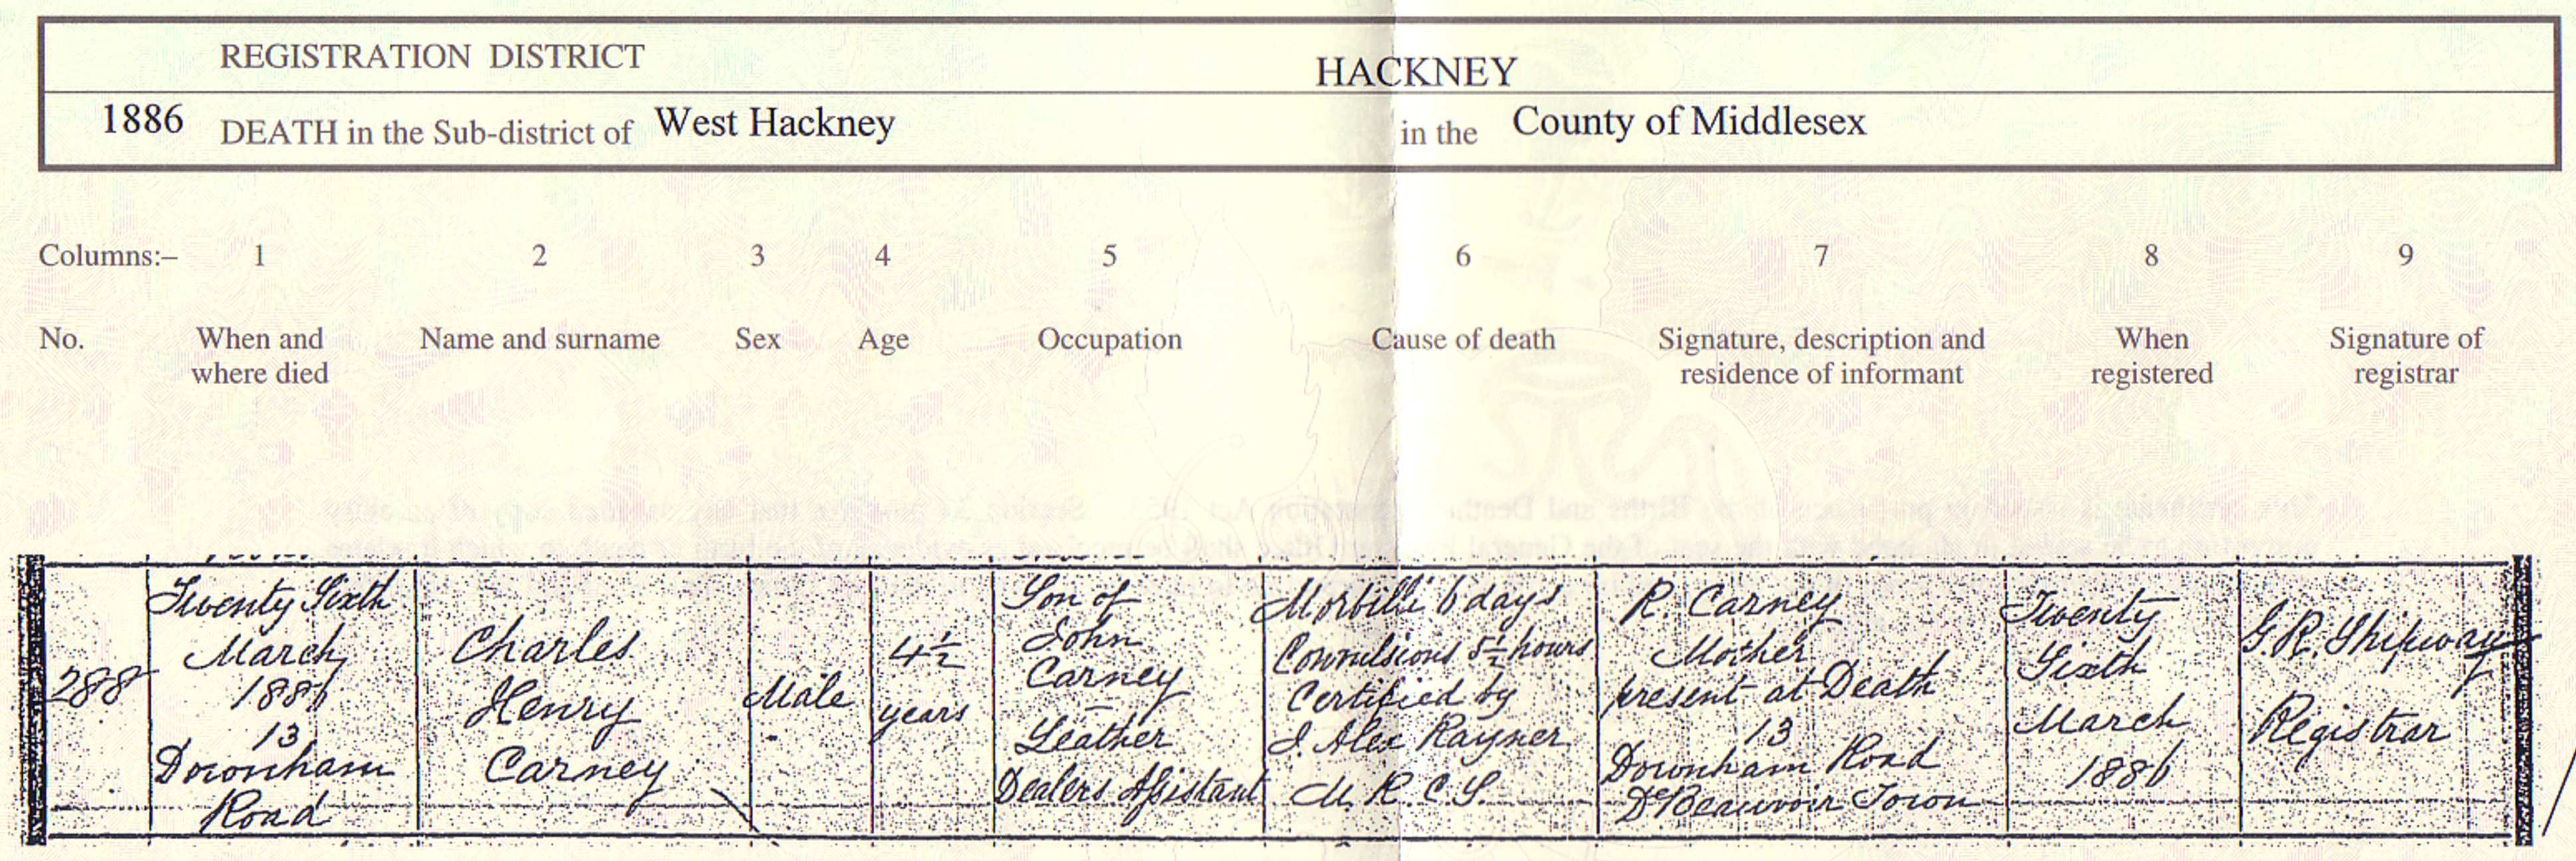 REGISTRATION DISTRICT HACKNEY
1886 DEATH in the Sub-district of West Hackney in the County of Middlesex
Columns:– 1 2 3 4 5 6 7 8 9
No. When and where died Name and surname Sex Age Occupation Cause of death Signature, description and residence of informant When registered Signature of registrar
288
Twenty Sixth
March
1886
13
Downham
Road
Charles
Henry
Carney
Male
4½
years
Son of
John
Carney
–
Leather
Dealers Assistant
Morbilli 6 days
Convulsions 5½ hours
Certified by
J. Alex Rayner
M. R. C. S.
R. Carney
Mother
present at Death
13
Downham Road
De Beauvoir Town
Twenty
Sixth
March
1886
G. R. Shipway
Registrar